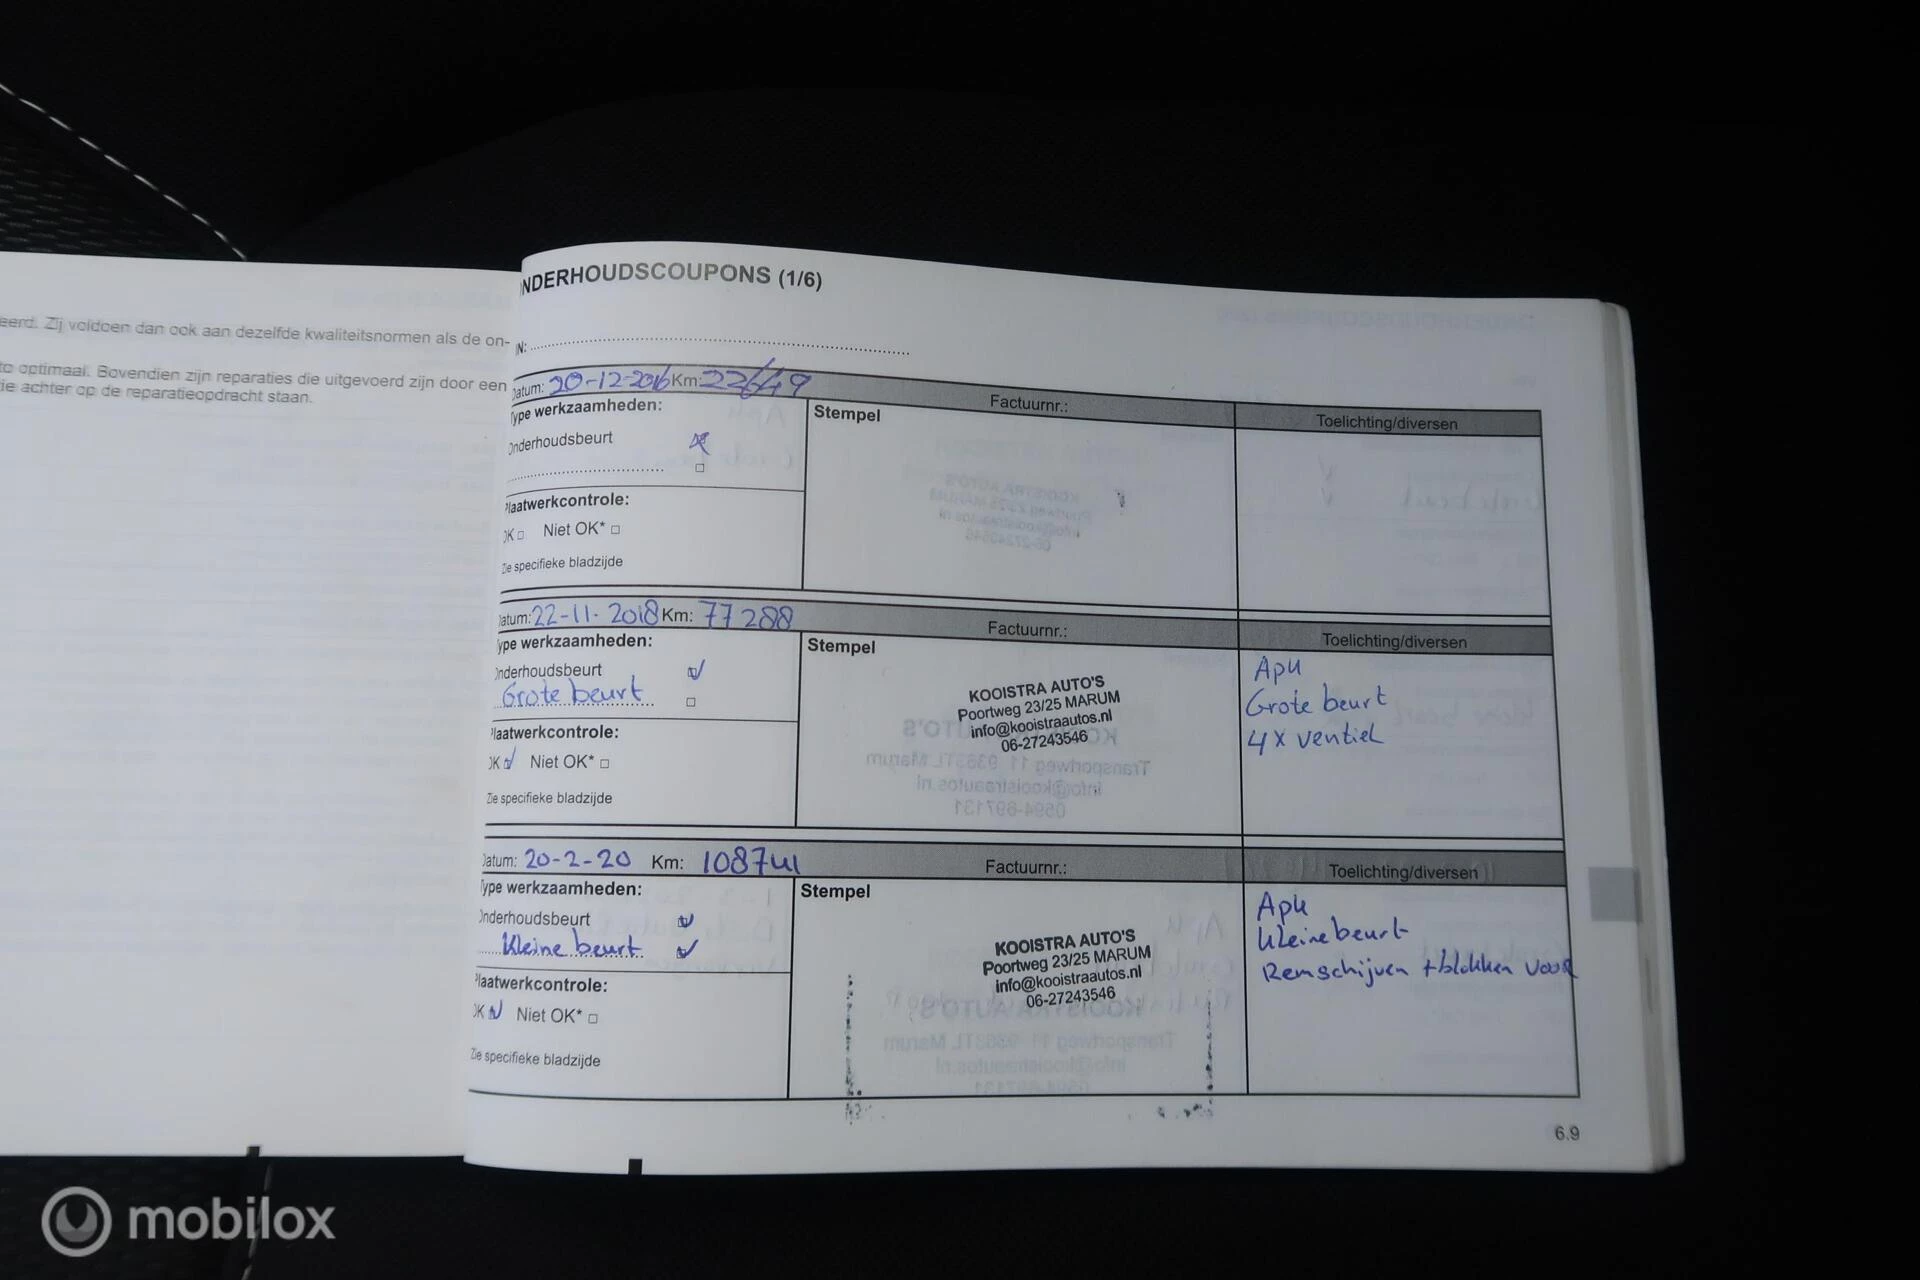 eerd. Zij voldoen dan ook aan dezelfde kwaliteitsnormen als de on-
optimaal. Bovendien zijn reparaties die uitgevoerd zijn door een
ie achter op de reparatieopdracht staan.
NDERHOUDSCOUPONS (1/6)
IN:
Datum: 20-12-2016 Km: 22649 Factuurnr.: Toelichting/diversen
Type werkzaamheden: Stempel
Onderhoudsbeurt
Plaatwerkcontrole:
OK Niet OK*
Zie specifieke bladzijde
Datum: 22-11-2018 Km: 77288 Factuurnr.: Toelichting/diversen
Type werkzaamheden: Stempel
Onderhoudsbeurt
Grote beurt
Plaatwerkcontrole:
OK Niet OK*
Zie specifieke bladzijde
KOOISTRA AUTO'S
Poortweg 23/25 MARUM
info@kooistraautos.nl
06-27243546
Apk
Grote beurt
4x ventiel
Datum: 20-2-20 Km: 108741 Factuurnr.: Toelichting/diversen
Type werkzaamheden: Stempel
Onderhoudsbeurt
Kleine beurt
Plaatwerkcontrole:
OK Niet OK*
Zie specifieke bladzijde
KOOISTRA AUTO'S
Poortweg 23/25 MARUM
info@kooistraautos.nl
06-27243546
Apk
Kleine beurt
Remschijven + blokken voor
6.9
mobilox